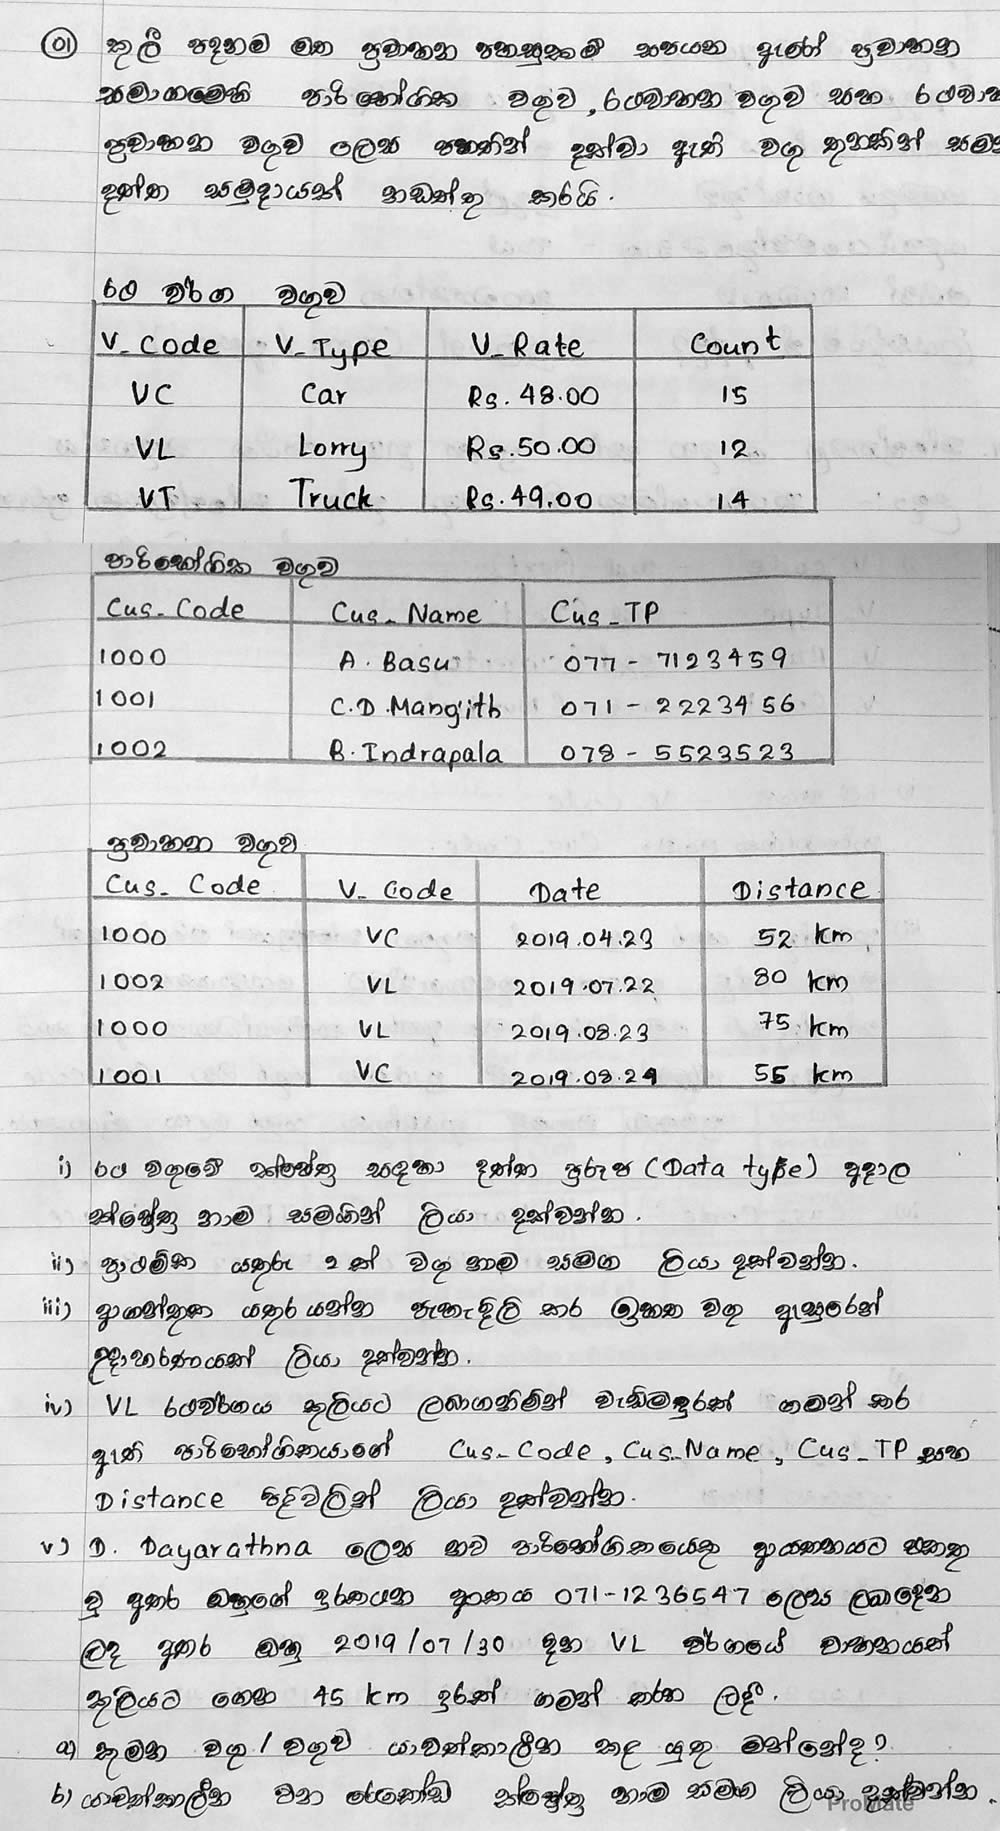 01 කුලී පදනම මත ප්‍රවාහන පහසුකම් සපයන ඇණෝ ප්‍රවාහන
සමාගමෙහි පාරිභෝගික වගුව, රථවාහන වගුව සහ රථවාහ
ප්‍රවාහන වගුව ලෙස පහතින් දක්වා ඇති වගු තුනකින් සමන්
දත්ත සමුදායක් නඩත්තු කරයි.
රථ වර්ග වගුව
V_Code V_Type V_Rate Count
VC Car Rs. 48.00 15
VL Lorry Rs. 50.00 12
VT Truck Rs. 49.00 14
පාරිභෝගික වගුව
Cus_Code Cus_Name Cus_TP
1000 A. Basu 077 - 7123459
1001 C.D. Mangith 071 - 2223456
1002 B. Indrapala 078 - 5523523
ප්‍රවාහන වගුව
Cus_Code V_Code Date Distance
1000 VC 2019.04.23 52 km
1002 VL 2019.07.22 80 km
1000 VL 2019.08.23 75 km
1001 VC 2019.08.24 55 km
i) රථ වගුවේ ක්ෂේත්‍ර සඳහා දත්ත පුරුප (Data type) අදාල
ක්ෂේත්‍ර නාම සමගින් ලියා දක්වන්න.
ii) ප්‍රාථමික යතුරු 2 ක් වගු නාම සමග ලියා දක්වන්න.
iii) ආගන්තුක යතුර යන්න පැහැදිලි කර ඉහත වගු ඇසුරෙන්
උදාහරණයක් ලියා දක්වන්න.
iv) VL රථවර්ගය කුලියට ලබාගනිමින් වැඩිමදුරක් ගමන් කර
ඇති පාරිභෝගිකයාගේ Cus_Code, Cus_Name, Cus_TP සහ
Distance පිළිවලින් ලියා දක්වන්න.
v) D. Dayarathna ලෙස නව පාරිභෝගිකයෙකු ආයතනයට එකතු
වූ අතර ඔහුගේ දුරකථන අංකය 071-1236547 ලෙස ලබාදෙන
ලද අතර ඔහු 2019/07/30 දින VL වර්ගයේ වාහනයක්
කුලියට ගෙන 45 km දුරක් ගමන් කරන ලදී.
a) කුමන වගු / වගුව යාවත්කාලීන කළ යුතු වන්නේද?
b) යාවත්කාලීන වන රෙකෝඩ ක්ෂේත්‍ර නාම සමග ලියා දක්වන්න.
ProMate